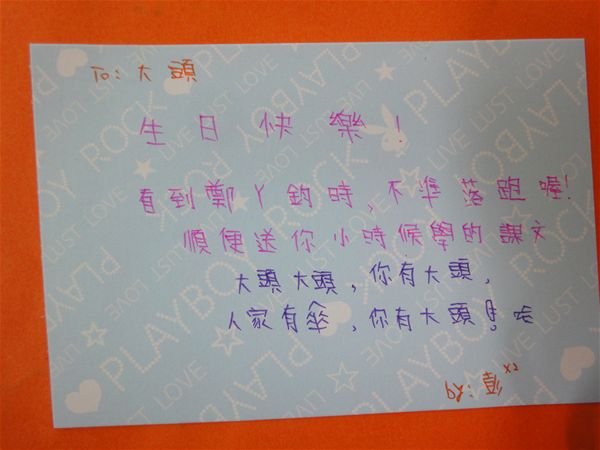 To: 大頭
生日快樂!
看到鄭丫鈞時,不準落跑喔!
順便送你小時候學的課文
大頭大頭,你有大頭,
人家有傘,你有大頭!哈
by: 彭 x2
PLAYBOY ROCK LOVE LUST LOVE